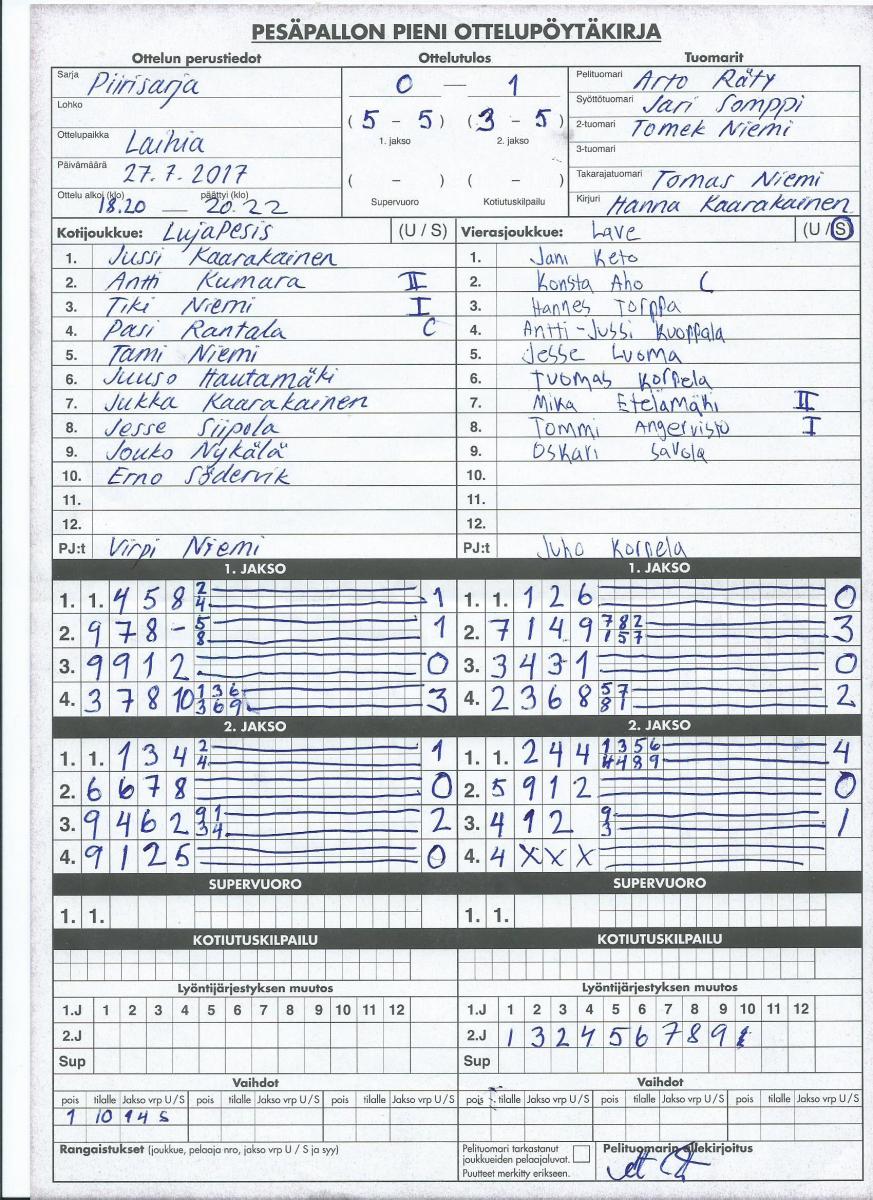 PESÄPALLON PIENI OTTELUPÖYTÄKIRJA
Ottelun perustiedot Ottelutulos Tuomarit
Sarja Piirisarja
Lohko
Ottelupaikka Laihia
Päivämäärä 27.7.2017
Ottelu alkoi (klo) päättyi (klo)
18.20 — 20.22
0 — 1
( 5 - 5 ) ( 3 - 5 )
1. jakso 2. jakso
( - ) ( - )
Supervuoro Kotiutuskilpailu
Pelituomari Arto Räty
Syöttötuomari Jari Somppi
2-tuomari Tomek Niemi
3-tuomari
Takarajatuomari Tomas Niemi
Kirjuri Hanna Kaarakainen
Kotijoukkue: LujaPesis (U / S)
1. Jussi Kaarakainen
2. Antti Kumara II
3. Tiki Niemi I
4. Pasi Rantala C
5. Tami Niemi
6. Juuso Hautamäki
7. Jukka Kaarakainen
8. Jesse Siipola
9. Jouko Nykälä
10. Erno Södervik
11.
12.
PJ:t Virpi Niemi
Vierasjoukkue: Lave (U / S)
1. Jani Keto
2. Konsta Aho C
3. Hannes Torppa
4. Antti-Jussi Kuoppala
5. Jesse Luoma
6. Tuomas Korpela
7. Mika Etelämäki II
8. Tommi Angervisto I
9. Oskari Savola
10.
11.
12.
PJ:t Juho Korpela
1. JAKSO
1. 1. 4 5 8 2 1
4
2. 9 7 8 - 5 1
8
3. 9 9 1 2 0
4. 3 7 8 10 1 3 6 3
3 6 9
2. JAKSO
1. 1. 1 3 4 2 1
4
2. 6 6 7 8 0
3. 9 4 6 2 9 1 2
3 4
4. 9 1 2 5 0
SUPERVUORO
1. 1.
KOTIUTUSKILPAILU
1. JAKSO
1. 1. 1 2 6 0
2. 7 1 4 9 7 8 2 3
1 5 7
3. 3 4 3 1 0
4. 2 3 6 8 5 7 2
8 1
2. JAKSO
1. 1. 2 4 4 1 3 5 6 4
4 4 8 9
2. 5 9 1 2 0
3. 4 1 2 9 1
3
4. 4 X X X
SUPERVUORO
1. 1.
KOTIUTUSKILPAILU
Lyöntijärjestyksen muutos
1.J 1 2 3 4 5 6 7 8 9 10 11 12
2.J
Sup
Lyöntijärjestyksen muutos
1.J 1 2 3 4 5 6 7 8 9 10 11 12
2.J 1 3 2 4 5 6 7 8 9
Sup
Vaihdot
pois tilalle Jakso vrp U/S pois tilalle Jakso vrp U/S pois tilalle Jakso vrp U/S
1 10 1 4 S
Vaihdot
pois tilalle Jakso vrp U/S pois tilalle Jakso vrp U/S pois tilalle Jakso vrp U/S
Rangaistukset (joukkue, pelaaja nro, jakso vrp U / S ja syy)
Pelituomari tarkastanut
joukkueiden pelaajaluvat.
Puutteet merkitty erikseen.
Pelituomarin allekirjoitus